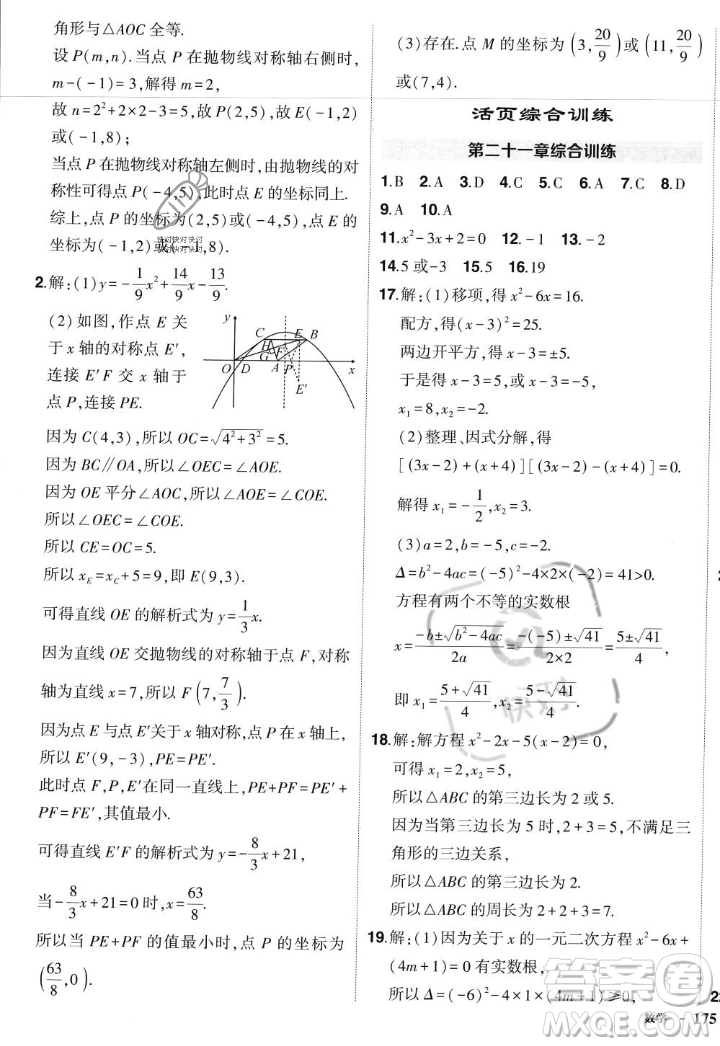 角形与△AOC 全等.
设 P(m,n).当点 P 在抛物线对称轴右侧时,
m-(-1)=3,解得 m=2,
故 n=2²+2×2-3=5,故 P(2,5),E(-1,2)
或(-1,8);
当点 P 在抛物线对称轴左侧时,由抛物线的对
称性可得 P(-4,5),此时点 E 的坐标同上.
综上,点 P 的坐标为(2,5)或(-4,5),点 E 的
坐标为(-1,2)或(-1,8).
2.解:(1)y=-1/9x²+14/9x-13/9.
(2)如图,作点 E 关
于 x 轴的对称点 E′,
连接 E′F 交 x 轴于
点 P,连接 PE.
y
C E B
H
G F
O D A P x
E′
因为 C(4,3),所以 OC=√(4²+3²)=5.
因为 BC∥OA,所以∠OEC=∠AOE.
因为 OE 平分∠AOC,所以∠AOE=∠COE.
所以∠OEC=∠COE.
所以 CE=OC=5.
所以 x_E=x_C+5=9,即 E(9,3).
可得直线 OE 的解析式为 y=1/3x.
因为直线 OE 交抛物线的对称轴于点 F,对称
轴为直线 x=7,所以 F(7,7/3).
因为点 E 与点 E′关于 x 轴对称,点 P 在 x 轴上,
所以 E′(9,-3),PE=PE′.
此时点 F,P,E′在同一直线上,PE+PF=PE′+
PF=FE′,其值最小.
可得直线 E′F 的解析式为 y=-8/3x+21,
当-8/3x+21=0 时,x=63/8.
所以当 PE+PF 的值最小时,点 P 的坐标为
(63/8,0).
(3)存在.点 M 的坐标为(3,20/9)或(11,20/9)
或(7,4).
活页综合训练
第二十一章综合训练
1.B 2.A 3.A 4.C 5.B 6.B 7.B 8.D
9.A 10.A
11.x²-3x+2=0 12.-1 13.-2
14.5 或-3 15.5 16.19
17.解:(1)移项,得 x²-6x=16.
配方,得(x-3)²=25.
两边开平方,得 x-3=±5.
x₁=8,x₂=-2.
(2)整理、因式分解,得
[(3x-2)+(x+4)][(3x-2)-(x+4)]=0.
解得 x₁=-1/2,x₂=3.
(3)a=2,b=-5,c=-2.
Δ=b²-4ac=(-5)²-4×2×(-2)=41>0.
方程有两个不等的实数根
x=(-b±√(b²-4ac))/2a=(-(-5)±√41)/(2×2)=(5±√41)/4,
即 x₁=(5+√41)/4,x₂=(5-√41)/4.
18.解:解方程 x²-2x-5(x-2)=0,
可得 x₁=2,x₂=5,
所以△ABC 的第三边长为 2 或 5.
因为当第三边长为 5 时,2+3=5,不满足三
角形的三边关系,
所以△ABC 的第三边长为 2.
所以△ABC 的周长为 2+2+3=7.
19.解:(1)因为关于 x 的一元二次方程 x²-6x+
(4m+1)=0 有实数根,
所以 Δ=(-6)²-4×1×(4m+1)≥0,
数学 - 175
答案圈
MXQE.COM